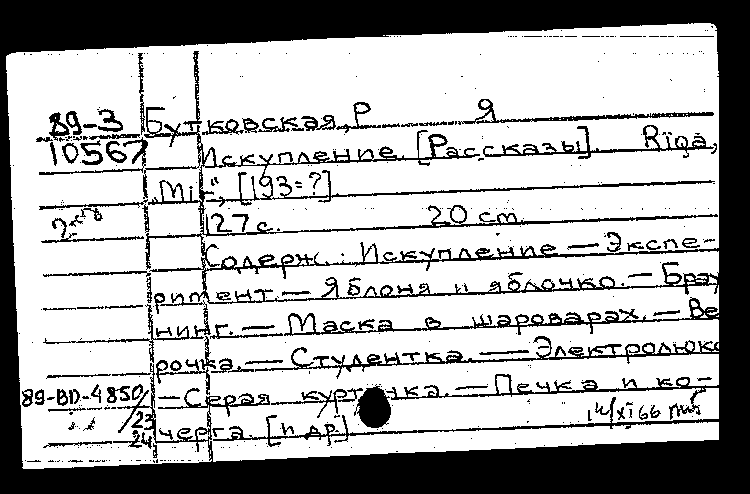 89-3 Бутковская, Р Я
10567 Искупление. [Рассказы]. Rīgā,
„Mir“, [193=?].
127 с. 20 cm.
Содерж.: Искупление — Экспе-
римент. — Яблоня и яблочко. — Брау
нинг. — Маска в шароварах. — Ве
рочка. — Студентка. — Электролюкс
89-BD-4850/ — Серая куртонка. — Печка и ко-
23
24 черга. [и др.]